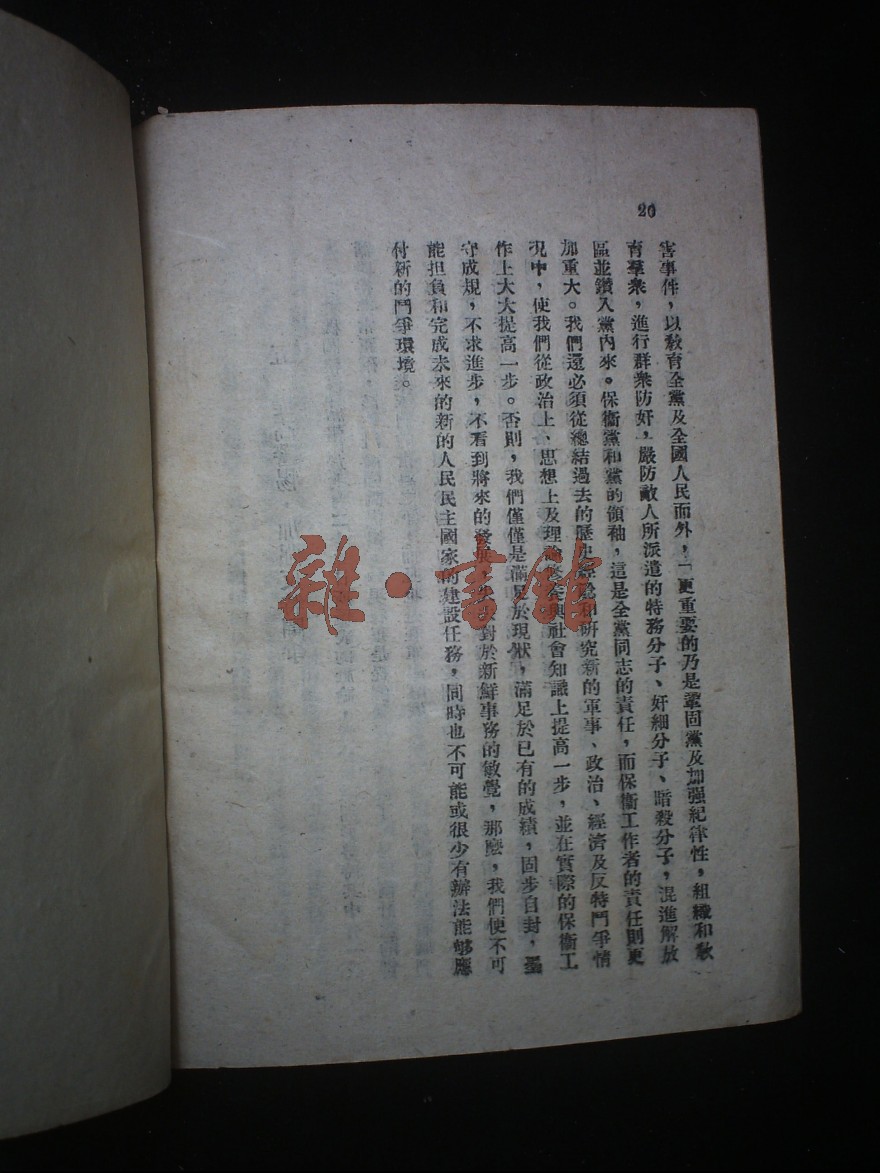 20
害事件，以敎育全黨及全國人民而外，「更重要的乃是鞏固黨及加强紀律性，組織和敎
育羣衆，進行群衆防奸，嚴防敵人所派遣的特務分子、奸細分子、暗殺分子，混進解放
區並鑽入黨內來。保衞黨和黨的領袖，這是全黨同志的責任，而保衞工作者的責任則更
加重大。我們還必須從總結過去的歷史經驗和研究新的軍事、政治、經濟及反特鬥爭情
況中，使我們從政治上、思想上及理論 與社會知識上提高一步，並在實際的保衞工
作上大大提高一步。否則，我們僅僅是滿足於現狀，滿足於已有的成績，固步自封，墨
守成規，不求進步，不看到將來的發展， 對於新鮮事務的敏覺，那麽，我們便不可
能担負和完成未來的新的人民民主國家的建設任務，同時也不可能或很少有辦法能够應
付新的鬥爭環境。
雜·書館